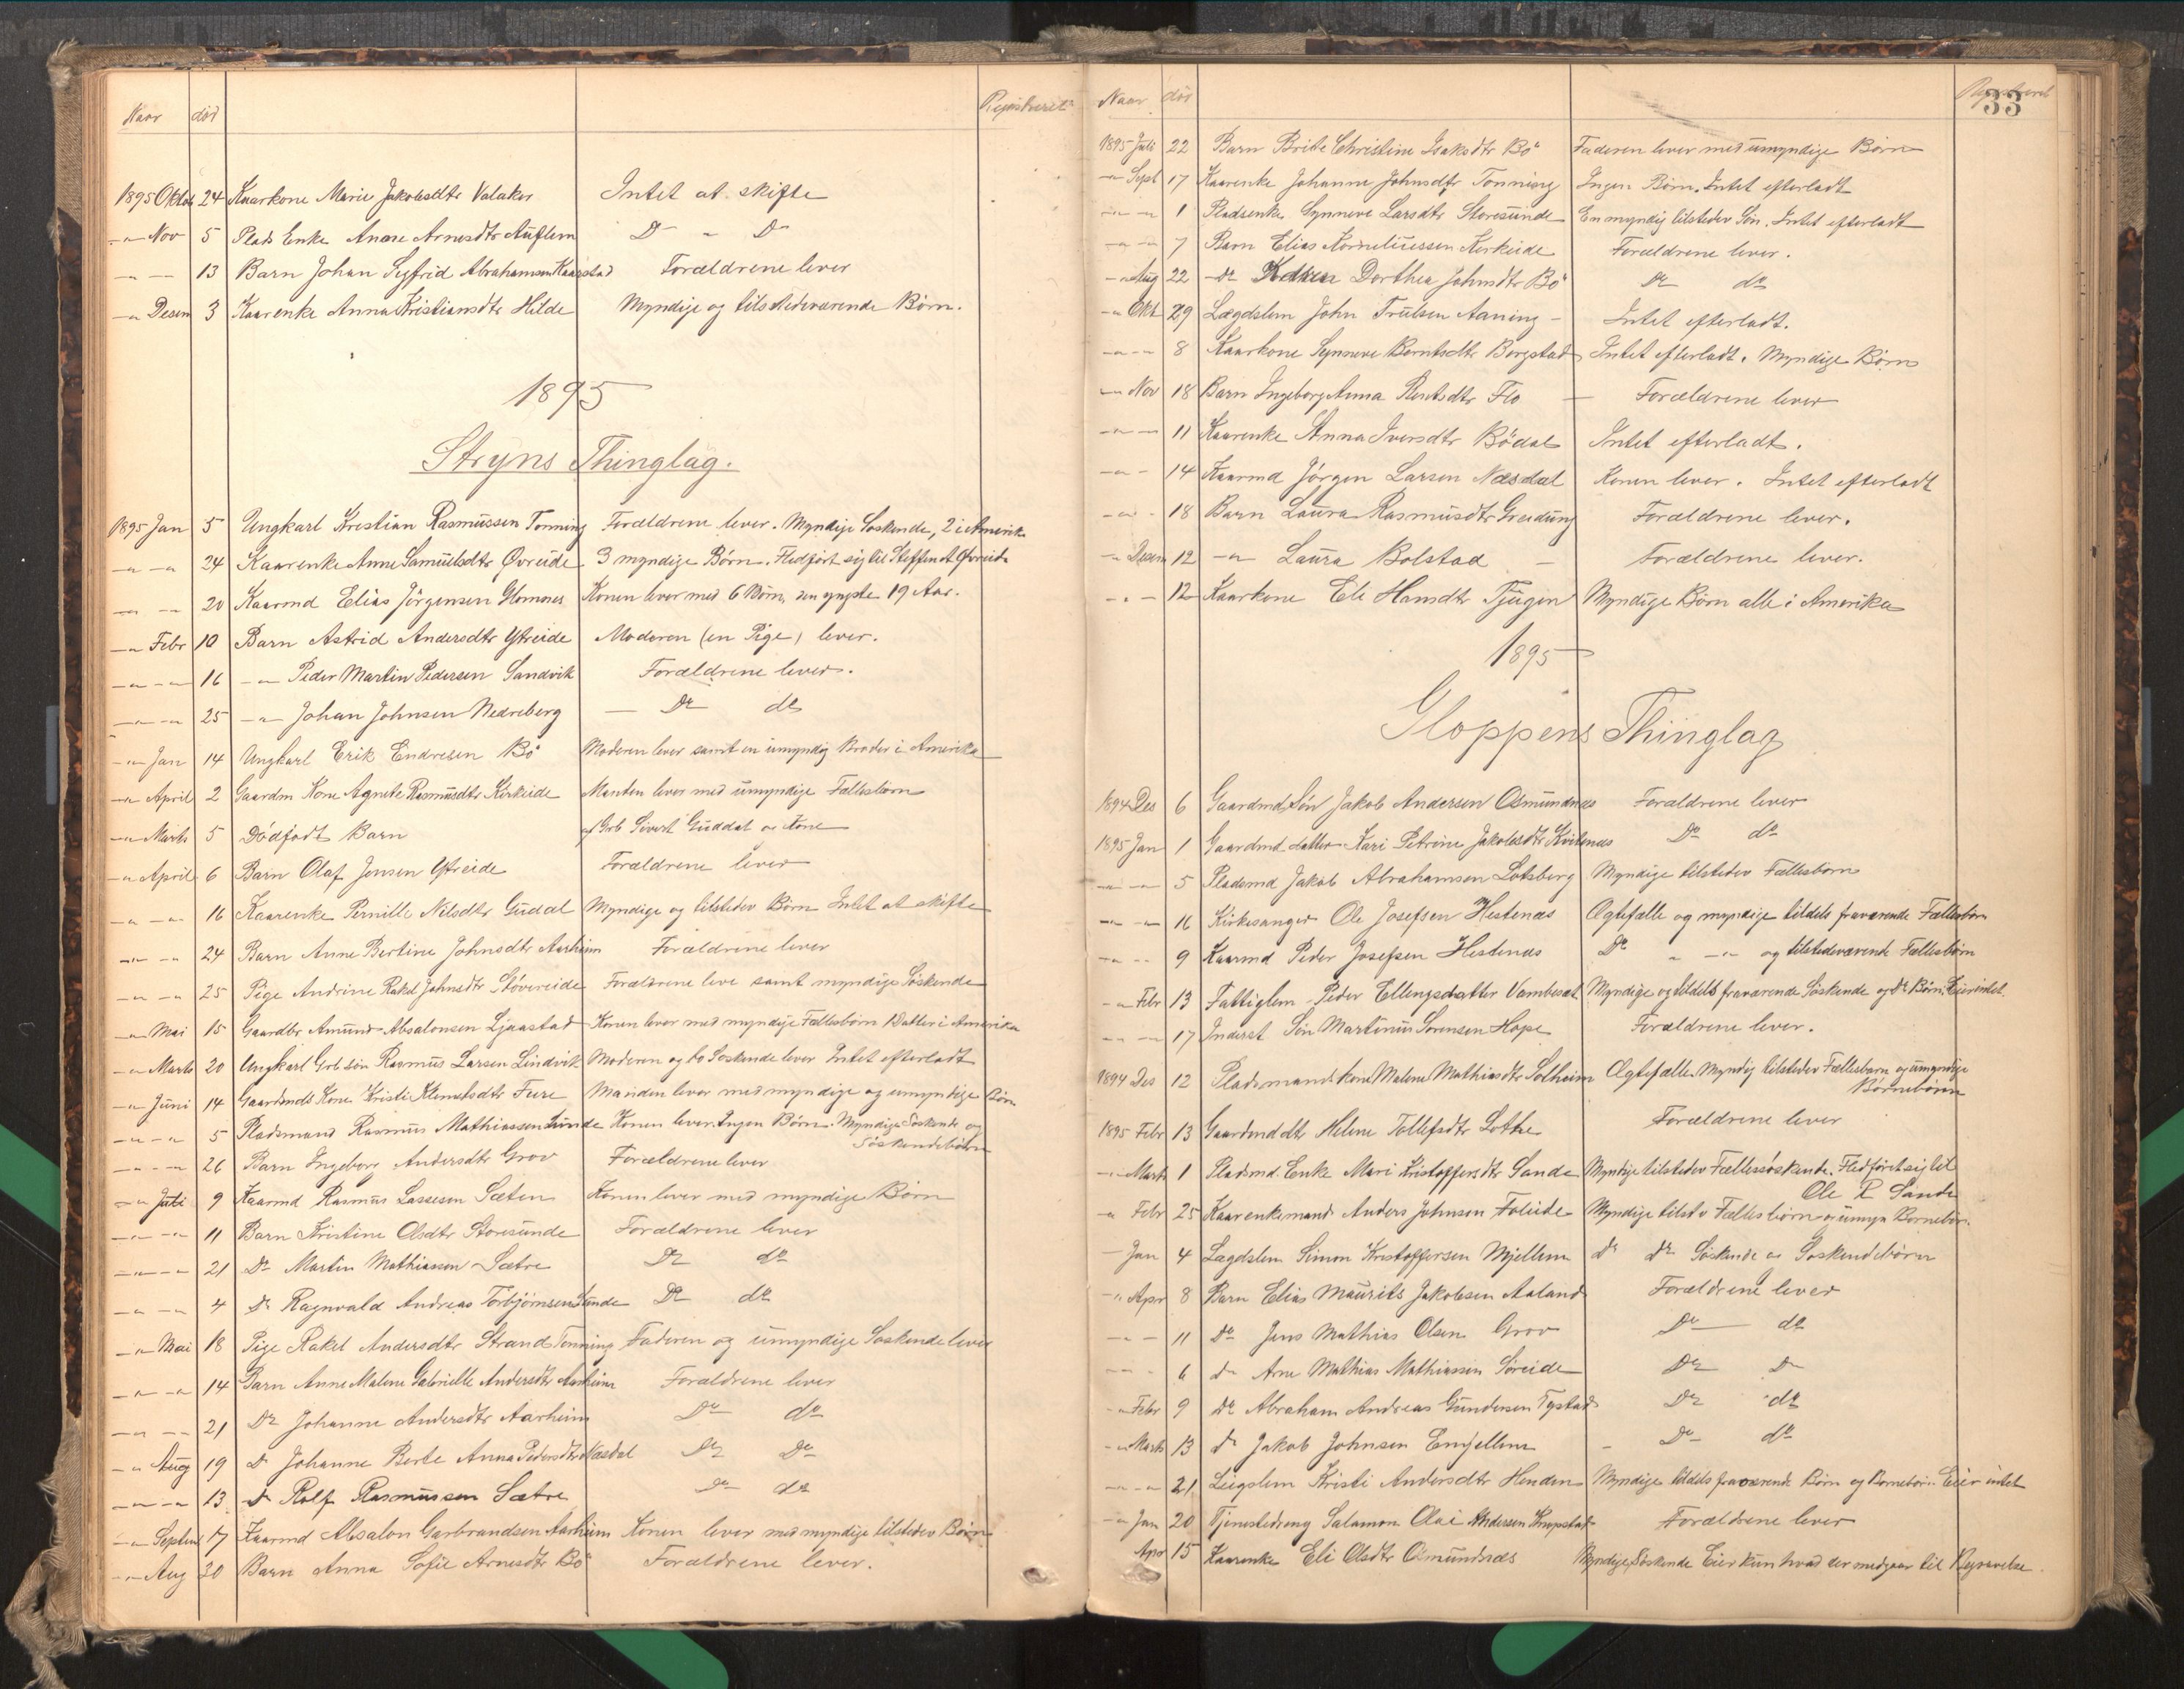 Naar død Registreret
1895 Oktob 24 Kaarkone Marie Jakobsdtr Valaker Intet at skifte
-"- Nov 5 Plads Enke Anne Arnesdtr Auflem Do " Do
-"- -"- 13 Barn Johan Sigfrid Abrahamsen Kaarstad Forældrene lever
-"- Desem 3 Kaarenke Anna Kristiansdtr Hilde Myndige og tilstedeværende Børn.
1895
Stryns Thinglag.
1895 Jan 5 Ungkarl Kristian Rasmussen Tonning Forældrene lever. Myndige Søskende, 2 i Amerika
-"- -"- 24 Kaarenke Anne Samuelsdtr Øvreide 3 myndige Børn. Fledført sig til Steffen A Øvreide
-"- -"- 20 Kaarmd Elias Jörgensen Glomnes Konen lever med 6 Børn, den yngste 19 Aar.
-"- Febr 10 Barn Astrid Andersdtr Ytreide Moderen (en Pige) lever.
-"- -"- 16 -"- Peder Martin Pedersen Sandvik Forældrene lever.
-"- -"- 25 -"- Johan Johnsen Nedreberg Do do
-"- Jan 14 Ungkarl Erik Endresen Bö Moderen lever samt en umyndig Broder i Amerika
-"- April 2 Gaardm Kone Agnete Rasmusdtr Kirkeide Manden lever med umyndige Fællesbørn
-"- Marts 5 Dødfødt Barn af Grb Sivert Guddal og Kone
-"- April 6 Barn Olaf Jensen Ytreide Forældrene lever
-"- -"- 16 Kaarenke Pernille Nilsdtr Gudal Myndige og tilstedev Børn Intet at skifte
-"- -"- 24 Barn Anne Bertine Johnsdtr Aarheim Forældrene lever
-"- -"- 25 Pige Andrine Rakel Johnsdtr Stövereide Forældrene leve samt myndige Söskende
-"- Mai 15 Gaardbr Amund Absalonsen Ljaastad Konen lever med myndige Fællesbörn 1 Datter i Amerika
-"- Marts 20 Ungkarl Grb sön Rasmus Larsen Lindvik Moderen og to Søskende lever Intet efterladt
-"- Juni 14 Gaardmds Kone Kristi Klemetsdtr Fure Manden lever med myndige og umyndige Børn
-"- -"- 5 Pladsmand Rasmus Mathiassen Sunde Konen lever. Ingen Børn. Myndige Søskende og
Söskendebörn
-"- -"- 26 Barn Ingeborg Andersdtr Grov Forældrene lever
-"- Juli 9 Kaarmd Rasmus Lassesen Sæten Konen lever med myndige Børn
-"- -"- 11 Barn Kristine Olsdtr Storesunde Forældrene lever
-"- -"- 21 Do Martin Mathiassen Sætre Do do
-"- -"- 4 Do Ragnvald Andreas Torbjörnsen Sunde Do do
-"- Mai 18 Pige Rakel Andersdtr Strand Tonning Faderen og umyndige Søskende lever
-"- -"- 14 Barn Anne Malene Gabrielle Andersdtr Aarheim Forældrene lever
-"- -"- 21 Do Johanne Andersdtr Aarheim Do do
-"- Aug 19 Do Johanne Berte Anna Pedersdtr Næsdal Do Do
-"- -"- 13 Do Rolf Rasmussen Sætre Do do
-"- Septem 17 Kaarmd Absalon Garbrandsen Aarheim Konen lever med myndige tilstedev Børn
-"- Aug 20 Barn Anna Sofie Arnesdtr Bö Forældrene lever.
Naar død Registreret
33
1895 Juli 22 Barn Brite Christine Isaksdtr Bö Faderen lever med umyndige Børn
-"- Sept 17 Kaarenke Johanne Johnsdtr Tonning Ingen Børn. Intet efterladt
-"- -"- 1 Pladsenke Synneve Larsdtr Storesunde En myndig tilstedev Søn. Intet efterladt
-"- -"- 7 Barn Elias Korneliussen Kirkeide Forældrene lever.
-"- Aug 22 Do Dorthea Johnsdtr Bö Do do
-"- Okt 29 Lægdslem John Trulsen Aaning Intet efterladt.
-"- -"- 8 Kaarkone Synneve Berntsdtr Borgstad Intet efterladt. Myndige Børn
-"- Nov 18 Barn Ingeborg Anna Bentsdtr Flo Forældrene lever
-"- -"- 11 Kaarenke Anna Iversdtr Bödal Intet efterladt.
-"- - 14 Kaarmd Jörgen Larsen Næsdal Konen lever. Intet efterladt
-"- - 18 Barn Laura Rasmusdtr Greidung Forældrene lever.
-"- Desem 12 -"- Laura Bolstad Forældrene lever.
-"- - 12 Kaarkone Eli Hansdtr Tjugen Myndige Børn alle i Amerika
1895
Gloppens Thinglag
1894 Des 6 Gaardmd Søn Jakob Andersen Osmundnes Forældrene lever
1895 Jan 1 Gaardmd datter Kari Petrine Jakobsdtr Kvitenes Do do
-"- -"- 5 Pladsmd Jakob Abrahamsen Lotsberg Myndige tilstedev Fællesbørn
-"- -"- 16 Kirkesanger Ole Josefsen Hestenæs Ægtefælle og myndige tildels fraværende Fællesbörn
-"- -"- 9 Kaarmd Peder Josefsen Hestenæs Do " -"- og tilstedeværende Fællesbörn
-"- Febr 13 Fattiglem Peder Ellingsdatter Vambeset Myndige og tildels fraværende Søskende og Do Børn. Eier intet.
-"- -"- 17 Inderst Søn Martinus Sørensen Hope Forældrene lever.
1894 Des 12 Pladsmands kone Malene Mathiasdtr Solheim Ægtefælle. Myndig tilstedev Fællesbarn og umyndige
Børnebörn
1895 Febr 13 Gaardmd dtr Helene Tollefsdtr Lothe Forældrene lever
-"- Marts 1 Pladsmd Enke Mari Kristoffersdtr Sande Myndige tilstedev Fællessöskende. Fledføret sig til
Ole R Sande
-"- Febr 25 Kaarenkemand Anders Johnsen Foleide Myndige tilstv Fællesbørn og umyn Børnebør.
- Jan 4 Lægdslem Simon Kristoffersen Mjellem Do Do Søskende og Søskendebörn
-"- Apr 8 Barn Elias Maurits Jakobsen Aaland Forældrene lever
-"- - 11 Do Jens Mathias Olsen Grov Do do
-"- - 6 do Arne Mathias Mathiassen Søreide Do Do
-"- Febr 9 Do Abraham Andreas Gundersen Tystad Do do
-"- Marts 13 do Jakob Johnsen Emjellem Do do
-"- -"- 21 Leigslem Kristi Andersdtr Henden Myndige tildels fraværende Børn og Børnebörn. Eier intet
-"- Jan 20 Tjenestedreng Salamon Olai Andersen Krupstad Forældrene lever
Apr 15 Kaarenke Eli Olsdtr Osmundnæs Myndige Søskende Eier kun hvad der medgaar til Begravelse.